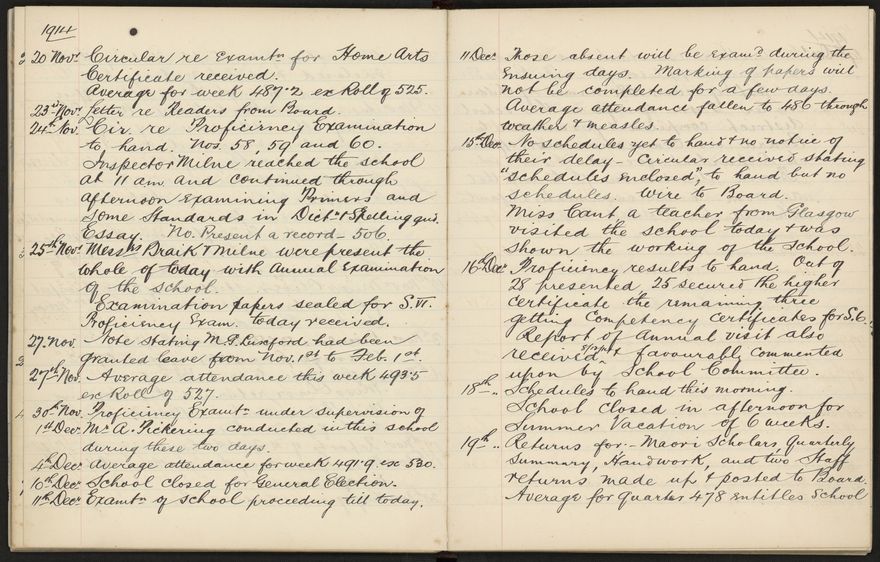 1914
20 Novr Circular re Examtn for Home Arts
Certificate received.
Average for week 487.2 ex Roll of 525.
23rd Novr Letter re Readers from Board
24th Novr Cir. re Proficiency Examination
to hand. Nos. 58, 59 and 60.
Inspector Milne reached the school
at 11 am and continued through
afternoon examining Primers and
some Standards in Dictn & Spelling and
Essay. No. Present a record - 506.
25th Novr Messrs Braik & Milne were present the
whole of today with Annual Examination
of the school.
Examination papers sealed for S.VI.
Proficiency Exam. today received.
27. Nov. Note stating M. P. Lunford had been
granted leave from Nov. 1st to Feb. 1st.
27th Nov. Average attendance this week 493.5
ex Roll of 527.
30th Nov. Proficiency Examtn under supervision of
1st Decr Mr A. Pickering conducted in this school
during these two days.
4th Decr Average attendance for week 491.9. ex 530.
10th Decr School closed for General Election.
11th Decr Examtn of school proceeding till today.
11 Decr Those absent will be Examd during the
ensuing days. Marking of papers will
not be completed for a few days.
Average attendance fallen to 486 through
weather & measles.
15th Decr No schedules yet to hand & no notice of
their delay - Circular received stating
"schedules enclosed", to hand but no
schedules. Wire to Board.
Miss Cant a teacher from Glasgow
visited the school today & was
shown the working of the School.
16th Decr Proficiency results to hand. Out of
28 presented, 25 secured the higher
certificate the remaining three
getting Competency Certificates for S.6.
Report of Annual visit also
received & favourably commented
upon by School Committee.
18th " Schedules to hand this morning.
School closed in afternoon for
Summer Vacation of 6 weeks.
19th " Returns for - Maori Scholars, Quarterly
Summary, Handwork, and two Staff
returns made up & posted to Board.
Average for Quarter 478 entitles School